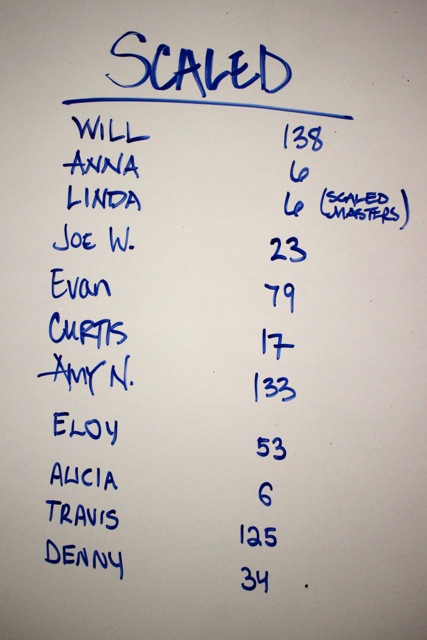 SCALED
WILL 138
ANNA 6
LINDA 6 (SCALED MASTERS)
JOE W. 23
Evan 79
CURTIS 17
AMY N. 133
ELOY 53
ALICIA 6
TRAVIS 125
DENNY 34